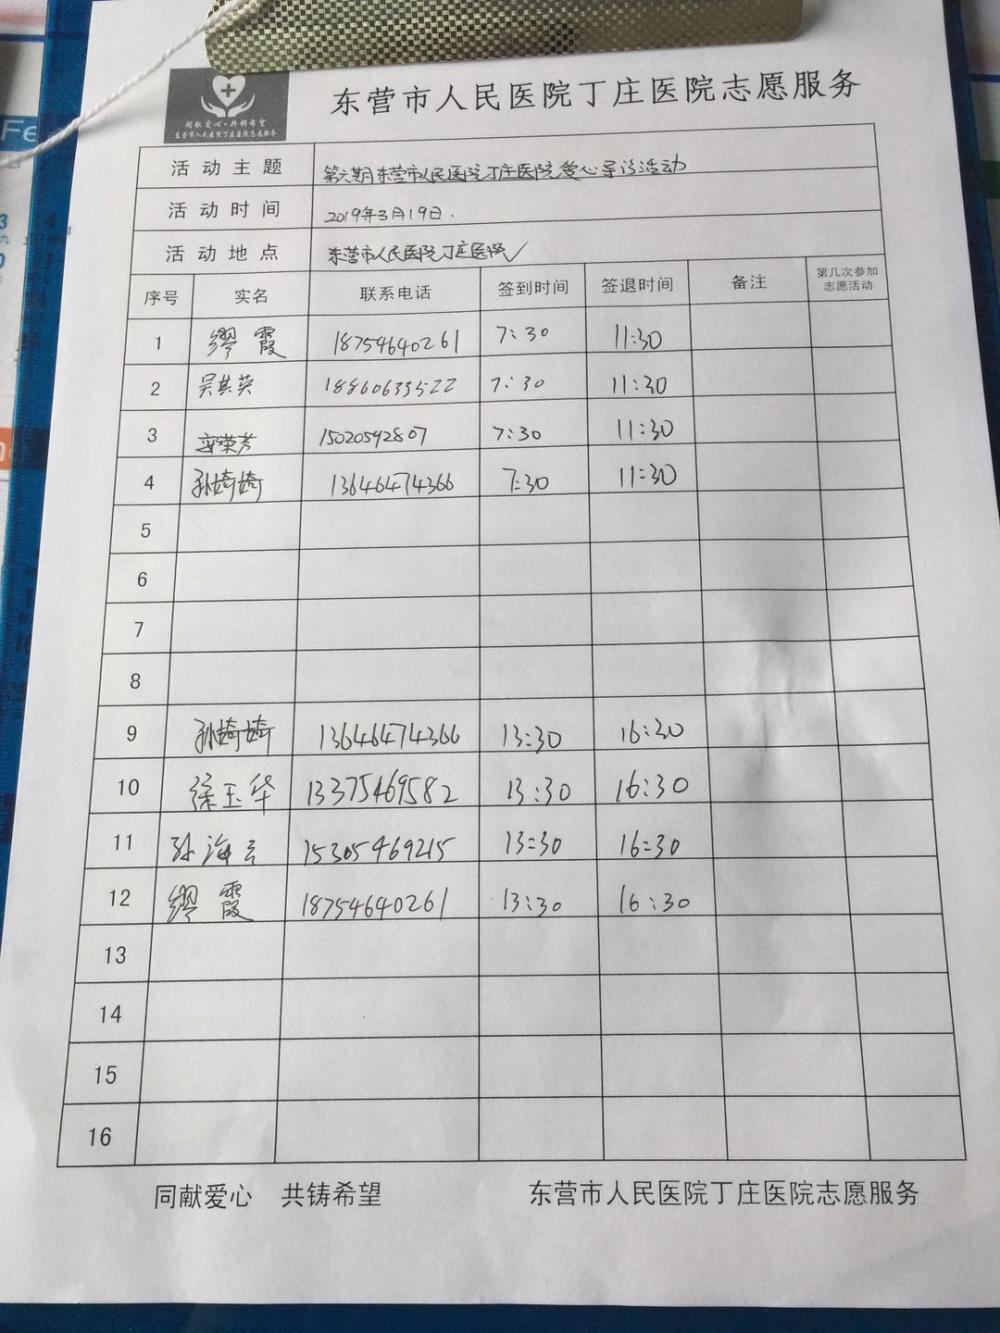 同献爱心·共铸希望
东营市人民医院丁庄医院志愿服务
东营市人民医院丁庄医院志愿服务
活动主题 第六期东营市人民医院丁庄医院爱心导诊活动
活动时间 2019年3月19日.
活动地点 东营市人民医院丁庄医院
序号 实名 联系电话 签到时间 签退时间 备注 第几次参加志愿活动
1 缪霞 18754640261 7:30 11:30
2 吴其英 18860633522 7:30 11:30
3 荣芳 15020592807 7:30 11:30
4 孙婍婍 13646474366 7:30 11:30
5
6
7
8
9 孙婍婍 13646474366 13:30 16:30
10 徐玉华 13375469582 13:30 16:30
11 孙海云 15305469215 13:30 16:30
12 缪霞 18754640261 13:30 16:30
13
14
15
16
同献爱心 共铸希望 东营市人民医院丁庄医院志愿服务